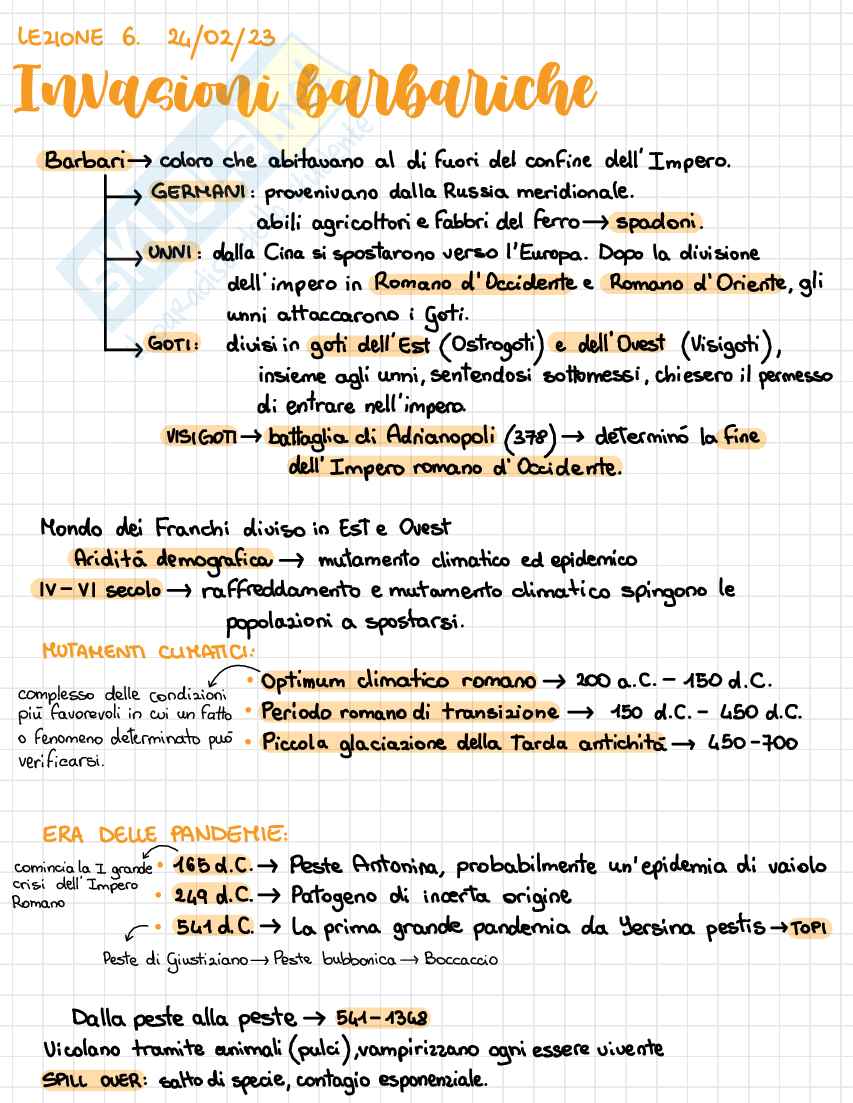 LEZIONE 6. 24/02/23
Invasioni barbariche
Barbari → coloro che abitavano al di fuori del confine dell'Impero.
→ GERMANI: provenivano dalla Russia meridionale.
abili agricoltori e fabbri del ferro → spadoni.
→ UNNI: dalla Cina si spostarono verso l'Europa. Dopo la divisione
dell'impero in Romano d'Occidente e Romano d'Oriente, gli
unni attaccarono i Goti.
→ GOTI: divisi in goti dell'Est (Ostrogoti) e dell'Ovest (Visigoti),
insieme agli unni, sentendosi sottomessi, chiesero il permesso
di entrare nell'impero.
VISIGOTI → battaglia di Adrianopoli (378) → determinó la fine
dell'Impero romano d'Occidente.
Mondo dei Franchi diviso in Est e Ovest
Ariditá demografica → mutamento climatico ed epidemico
IV-VI secolo → raffreddamento e mutamento climatico spingono le
popolazioni a spostarsi.
MUTAMENTI CLIMATICI:
• Optimum climatico romano → 200 a.C. - 150 d.C.
complesso delle condizioni
piú favorevoli in cui un fatto
o fenomeno determinato puó
verificarsi.
• Periodo romano di transizione → 150 d.C. - 450 d.C.
• Piccola glaciazione della Tarda antichitá → 450-700
ERA DELLE PANDEMIE:
• 165 d.C. → Peste Antonina, probabilmente un'epidemia di vaiolo
comincia la I grande
crisi dell'Impero
Romano
• 249 d.C. → Patogeno di incerta origine
• 541 d.C. → La prima grande pandemia da Yersina pestis → TOPI
Peste di Giustiziano → Peste bubbonica → Boccaccio
Dalla peste alla peste → 541-1348
Vicolano tramite animali (pulci), vampirizzano ogni essere vivente
SPILL OVER: salto di specie, contagio esponenziale.